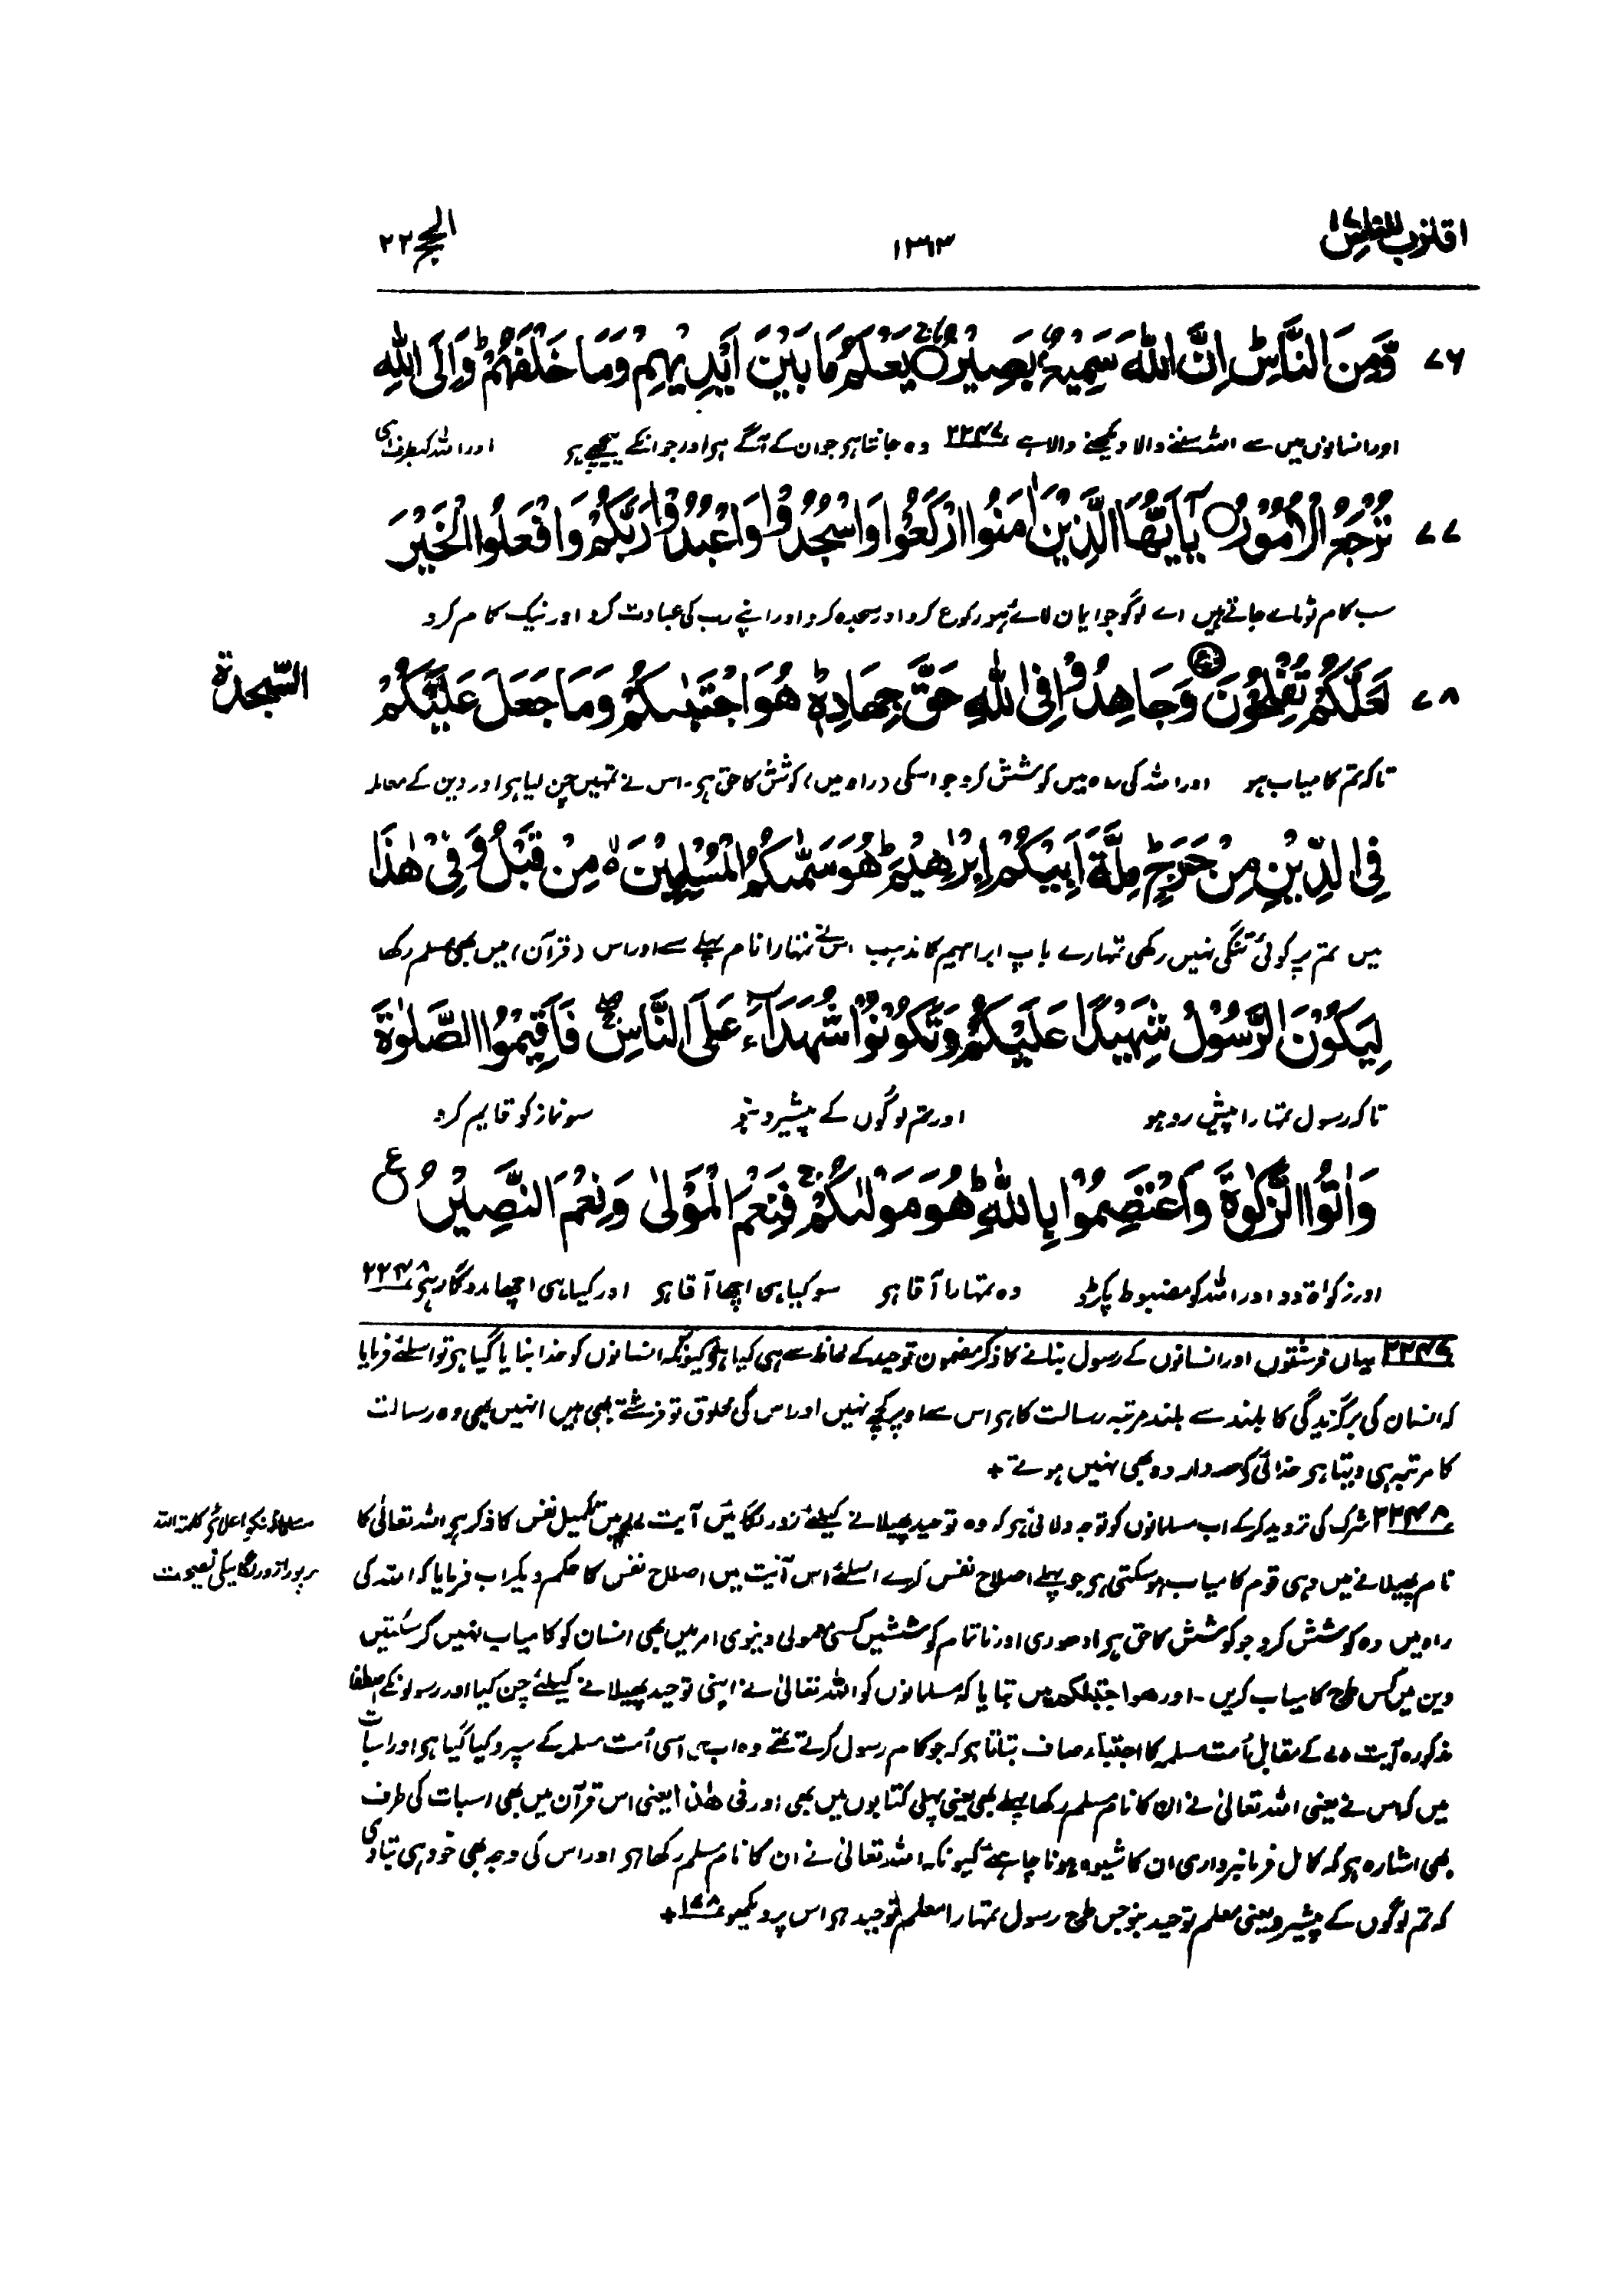 اقترب للناس ۱۷
۱۳۶۳
الحج ۲۲
۷۶ وَّمِنَ النَّاسِ ؕ اِنَّ اللّٰهَ سَمِيْعٌۢ بَصِيْرٌ ۚ يَعْلَمُ مَا بَيْنَ اَيْدِيْهِمْ وَمَا خَلْفَهُمْ ؕ وَاِلَى اللّٰهِ
اور انسانوں میں سے اللہ سننے والا دیکھنے والا ہے ۲۲۴۷ وہ جانتا ہو جو ان کے آگے ہو اور جو انکے پیچھے ہو اور اللہ کیطرف ہی
۷۷ تُرْجَعُ الْاُمُوْرُ ۝ يٰۤاَيُّهَا الَّذِيْنَ اٰمَنُوا ارْكَعُوْا وَاسْجُدُوْا وَاعْبُدُوْا رَبَّكُمْ وَافْعَلُوا الْخَيْرَ
سب کام لوٹائے جاتے ہیں اے لوگو جو ایمان لائے ہو رکوع کرو اور سجدہ کرو اور اپنے رب کی عبادت کرو اور نیک کام کرو
۷۸ لَعَلَّكُمْ تُفْلِحُوْنَ ۝ وَجَاهِدُوْا فِى اللّٰهِ حَقَّ جِهَادِهٖ ؕ هُوَ اجْتَبٰىكُمْ وَمَا جَعَلَ عَلَيْكُمْ
السّجدة
تاکہ تم کامیاب ہو اور اللہ کی راہ میں کوشش کرو جو اسکی (راہ میں) کوشش کا حق ہو۔ اس نے تمہیں چن لیا ہو اور دین کے معاملہ
فِى الدِّيْنِ مِنْ حَرَجٍ ؕ مِلَّةَ اَبِيْكُمْ اِبْرٰهِيْمَ ؕ هُوَ سَمّٰىكُمُ الْمُسْلِمِيْنَ ۙ مِنْ قَبْلُ وَفِىْ هٰذَا
میں تم پر کوئی تنگی نہیں رکھی تمہارے باپ ابراہیم کا مذہب اس نے تمہارا نام پہلے سے اور اس (قرآن) میں بھی مسلم رکھا
لِيَكُوْنَ الرَّسُوْلُ شَهِيْدًا عَلَيْكُمْ وَتَكُوْنُوْا شُهَدَآءَ عَلَى النَّاسِ ۖۚ فَاَقِيْمُوا الصَّلٰوةَ
تاکہ رسول تمہارا پیش رو ہو اور تم لوگوں کے پیشرو بنو سو نماز کو قایم کرو
وَاٰتُوا الزَّكٰوةَ وَاعْتَصِمُوْا بِاللّٰهِ ؕ هُوَ مَوْلٰىكُمْ ۚ فَنِعْمَ الْمَوْلٰى وَنِعْمَ النَّصِيْرُ ۝ ع
اور زکواۃ دو اور اللہ کو مضبوط پکڑو وہ تمہارا آقا ہو سو کیا ہی اچھا آقا ہو اور کیا ہی اچھا مددگار ہو ۲۲۴۸
۲۲۴۷ یہاں فرشتوں اور انسانوں کے رسول بنانے کا ذکر مضمون توحید کے لحاظ سے ہی کیا ہو کیونکہ انسانوں کو خدا بنایا گیا ہو تو اسلئے فرمایا
کہ انسان کی برگزیدگی کا بلند سے بلند مرتبہ رسالت کا ہو اس سے اوپر کچھ نہیں اور اس کی مخلوق تو فرشتے بھی ہیں انہیں بھی وہ رسالت
کا مرتبہ ہی دیتا ہو خدائی کے حصہ دار وہ بھی نہیں ہوتے +
۲۲۴۸ شرک کی تردید کرکے اب مسلمانوں کو توجہ دلائی ہو کہ وہ توحید پھیلانے کیلئے زور لگائیں آیت ۷۷ میں تکمیل نفس کا ذکر ہو اللہ تعالیٰ کا
مسلمانوں کو اعلائے کلمۃ اللہ
نام پھیلانے میں وہی قوم کامیاب ہو سکتی ہو جو پہلے اصلاح نفس کرے اسلئے اس آیت میں اصلاح نفس کا حکم دیکر اب فرمایا کہ اللہ کی
پر پورا زور لگانیکی نصیحت
راہ میں وہ کوشش کرو جو کوشش کا حق ہو ادھوری اور ناتمام کوششیں کسی معمولی دنیوی امر میں بھی انسان کو کامیاب نہیں کر سکتیں
دین میں کس طرح کامیاب کریں۔ اور ھو اجتبٰکم میں بتایا کہ مسلمانوں کو اللہ تعالیٰ نے اپنی توحید پھیلانے کیلئے چن کیا اور رسولونکے اصطفا
مذکورہ آیت ۷۵ کے مقابل اُمت مسلمہ کا اجتباء صاف بتاتا ہو کہ جو کام رسول کرتے تھے وہ اب اسی اُمت مسلمہ کے سپرد کیا گیا ہو اور اسبات
میں کہ اس نے یعنی اللہ تعالیٰ نے ان کا نام مسلم رکھا پہلے بھی یعنی پہلی کتابوں میں بھی اور فی ھٰذا یعنی اس قرآن میں بھی اسبات کی طرف
بھی اشارہ ہو کہ کامل فرمانبرداری ان کا شیوہ ہونا چاہئے کیونکہ اللہ تعالیٰ نے ان کا نام مسلم رکھا ہو اور اس کی وجہ بھی خود ہی بتادی
کہ تم لوگوں کے پیشرو یعنی معلم توحید بنو جس طرح رسول تمہارا معلم توحید ہو اس پر دیکھو ۱۷۸ +